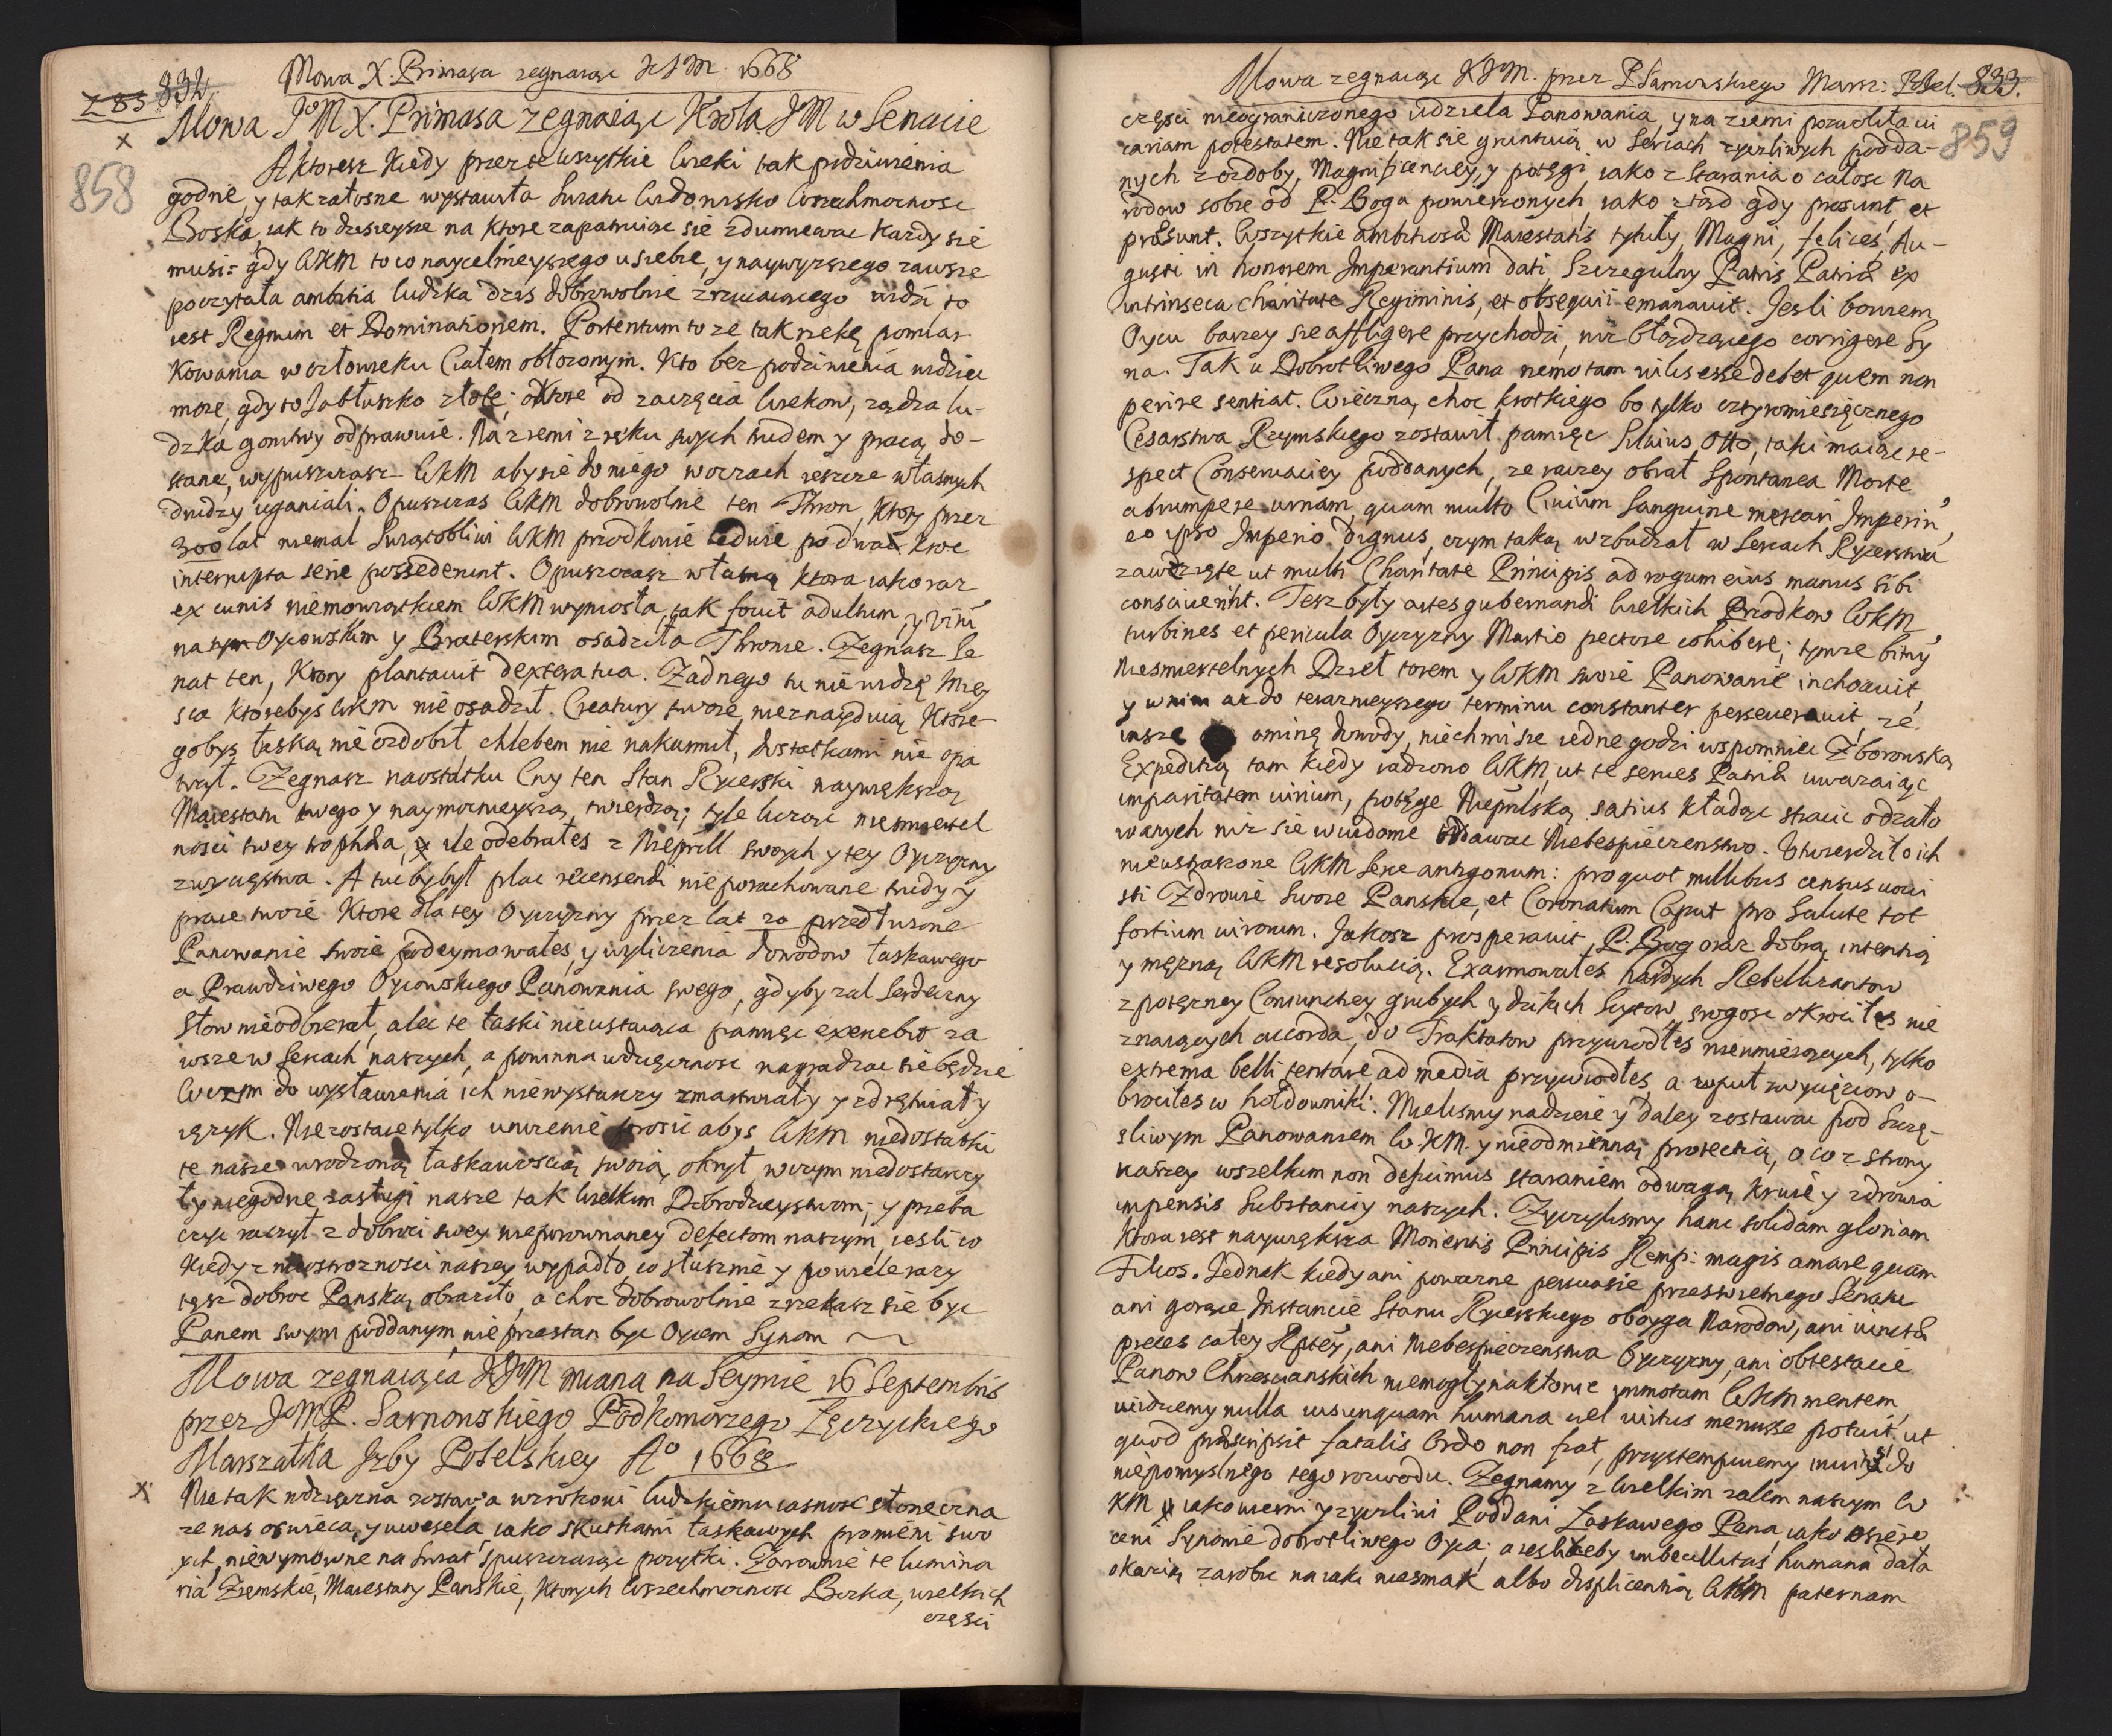 Mowa X. Primasa zegnaiąc KJM 1668
285 832.
858
Mowa JM X. Primasa zegnaiąc Krola JM w Senacie
A ktoresz kiedy przez te wszytkie wieki tak podziwienia
godne, y tak załosne wystawiła swiatu widowisko wszechmocnosc
Boska, iak to dzisieysze na ktore zapatruiąc się zdumiewac kazdy się
musi: gdy WKM to co naycelnieyszego u siebie, y naywyzszego zawsze
poczytała ambitia ludzka dzis dobrowolnie zrzucaiącego widzi to
iest Regnum et Dominationem. Portentum to ze tak rzekę pomiar
kowania w człowieku Ciałem obłozonym. Kto bez podziwienia widziec
moze, gdy to Jabłuszko złote, o ktore od zaczęcia wiekow, ządza lu-
dzka gonitwy odprawuie. Na ziemi z ręku swych trudem y pracą do-
stane, wypuszczasz WKM aby się do niego w oczach ieszcze własnych
drudzy uganiali. Opuszczas WKM dobrowolnie ten Thron, ktory przez
300 lat niemal Swiątobliwi WKM przodkowie ledwie po dwa kroc
interrupta serie possederunt. Opuszczasz własną ktora iako raz
ex cunis niemowiątkiem WKM wyniosła, tak fovit adultum, y virū
na tym Oycowskim y Braterskim osadziła Thronie. Zegnasz Se
nat ten, ktory plantavit dextera tua. Zadnego tu nie widzę miey
sca ktorebys WKM nie osadził. Creatury twoie, nieznayduią ktore-
gobys łaską nie ozdobił, chlebem nie nakarmił, dostatkami nie opa
trzył. Zegnasz naostatku Cny ten Stan Rycerski naywiększą
Maiestatu twego y naymocnieyszą twierdzą; tyle liczące niesmiertel
nosci twey trophæa, ile odebrałes z Nieprzll swoych y tey Oyczyzny
zwycięstwa. A tuc by był plac recensendi nieporachowane trudy y
prace twoie ktore dla tey Oyczyzny przez lat 20 przedłuzone
Panowanie twoie podeymowałes, y wyliczenia dowodow łaskawego
a Prawdziwego Oycowskiego Panowania swego, gdyby zal serdeczny
Słow nie odbierał, alec te łaski nieustaiąca pamięc exenebro za
wsze w sercach naszych, a powinna wdzięcznosc nagradzac się będzie
W czym do wysławienia ich niewystarczy zmartwiały y zdrętwiały
ięzyk. Nie zostaie tylko unizenie prosic abys WKM niedostatki
te nasze wrodzoną łaskawoscią twoią okrył, w czym niedostarczy
ły niegodne zasługi nasze tak wielkim Dobrodzieystwom; y przeba
czyc raczył z dobroci swey nieporownaney defectom naszym, iesli co
kiedy z nieostroznosci naszey wypadło, co słusznie y powielerazy
tęsz dobroc Panską obraziło, a choc dobrowolnie zrzekasz się byc
Panem swym poddanym, nie przestan byc Oycem Synom
Mowa zegnaiąca KJM miana na Seymie 16 Septembris
przez JMP. Sarnowskiego Podkomorzego Łęczyckiego
Marszałka Izby Poselskiey Ao 1668
Nie tak wdzięczna zostawa wzrokowi ludzkiemu iasnosc słoneczna
ze nas oswieca, y uwesela, iako skutkami łaskawych promieni swo
ych, niewymowne na swiat spuszczaiąc pozytki. Zarownie te lumina
ria Ziemskie, Maiestaty Panskie, ktorych Wszechmocnosc Boska, wielkich
częsci
Mowa zegnaiąc KJM. przez P Sarnowskiego Marsz: Posel. 833.
859
częsci nieograniczonego udziela Panowania, y na ziemi pozwoliła vi
cariam potestatem. Nie tak się gruntuią w sercach zyczliwych podda-
nych z ozdoby, Magnificenciey, y potęgi iako z starania o całosc Na
rodow sobie od P. Boga powierzonych iako ztąd gdy præsunt, et
prosunt. Wszytkie ambitiosæ Maiestatis tytuły, Magni, felices, Au-
gusti in honorem Imperantium dati, Szczegulny Patris Patriæ ex
intrinseca charitate Regiminis, et obsequii emanavit. Jesli bowiem
Oycu barzey sie affligere przychodzi, niz błądzącego corrigere Sy
na. Tak u Dobrotliwego Pana nemo tam vilis esse debet quem non
perire sentiat. Wieczną, choc krotkiego bo tylko cztyromiesięcznego
Cesarstwa Rzymskiego zostawił pamięc Silvius Otto, taki maiąc re-
spect Conservaciey poddanych, ze raczey obrał spontanea Morte
abrumpere urnam, quam multo Civium Sanguine mercari Imperiū,
eo ipso Imperio dignus, czym taką wzbudzał w sercach Rycerstwa
zawziętę ut multi Charitate Principis ad rogum eius manus sibi
consciverint. Tesz były artes gubernandi wielkich Przodkow WKM,
turbines et pericula Oyczyzny Martio pectore cohibere; tymze bitny
Niesmiertelnych Dzieł torem y WKM swoie Panowanie inchoavit,
y w nim az do teraznieyszego terminu constanter perseveravit, ze
insze ominę dowody, niech mi sie iedne godzi wspomniec Zborowską
Expeditią tam kiedy radzono WKM, ut te serves Patriæ uwazaiąc
imparitatem virium, potęge Nieprlską satius kładąc stracic odzało
wanych niz sie wiadome oddawac Niebespieczenstwo. Utwierdziło ich
nieustaszone WKM serce antigonum: pro quot millibus census uoci
sti Zdrowie swoie Panskie, et Coronatum Caput pro salute tot
fortium virorum. Jakosz prosperavit P. Bog oraz dobrą intentią
y męzną WKM resolucią. Exarmowałes hardych Rebellizantow
z potęzney Coniunctiey grubych y dzikich Scytow, srogosc okrociłes nie
znaiących accorda, do Traktatow przywiodłes nieumieiących, tylko
extrema belli tentare, ad media przywiodłes, a w puł zwyciezcow o-
brociłes w hołdowniki. Mielismy nadzieie y daley zostawac pod Szczę-
sliwym Panowaniem W. KM. y nieodmienną protectią, o co z strony
naszey wszelkim non defuimus staraniem odwagą krwie y zdrowia
impensis Substanciy naszych. Zyczylismy hanc solidam gloriam
ktora iest naywiększa Morientis Principis Remp: magis amare quam
Filios. Jednak kiedy ani powazne persuasie przeswietnego Senatu
ani gorące Instancie Stanu Rycerskiego oboyga Narodow, ani cunctæ
preces całey Rptey, ani Niebespieczenstwa Oyczyzny, ani obtestacie
Panow Chrzescianskich niemogły nakłonic immotam WKM mentem,
widziemy nulla usunquam humana vel virtus meruisse potuit, ut
quod præscripsit fatalis Ordo non fiat, przystempuiemy inviti do
niepomyslnego tego rozwodu. Zegnamy z wielkim zalem naszym W
KM iako wierni y zyczliwi Poddani Łaskawego Pana, iako osiero
ceni Synowie dobrotliwego Oyca; a iesliby imbecillitas humana dała
okazią zarobic na iaki niesmak albo displicentią WKM paternam